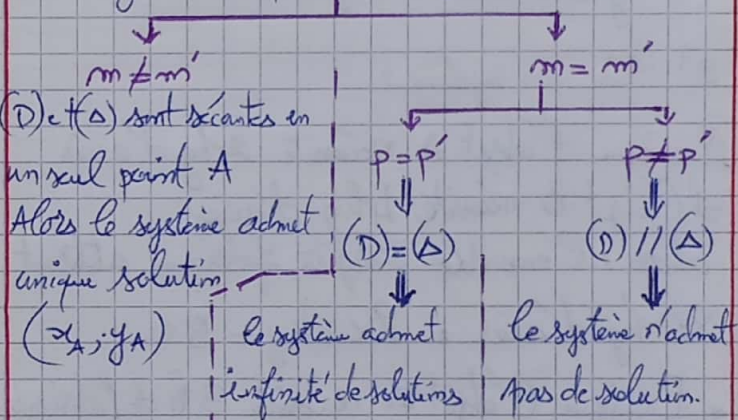 m ≠ m'
m = m'
(D) et (Δ) sont sécantes en
un seul point A
Alors le système admet
unique solution
(x_A ; y_A)
p = p'
p ≠ p'
(D) = (Δ)
(D) // (Δ)
le système admet
infinité de solutions
le système n'admet
pas de solution.